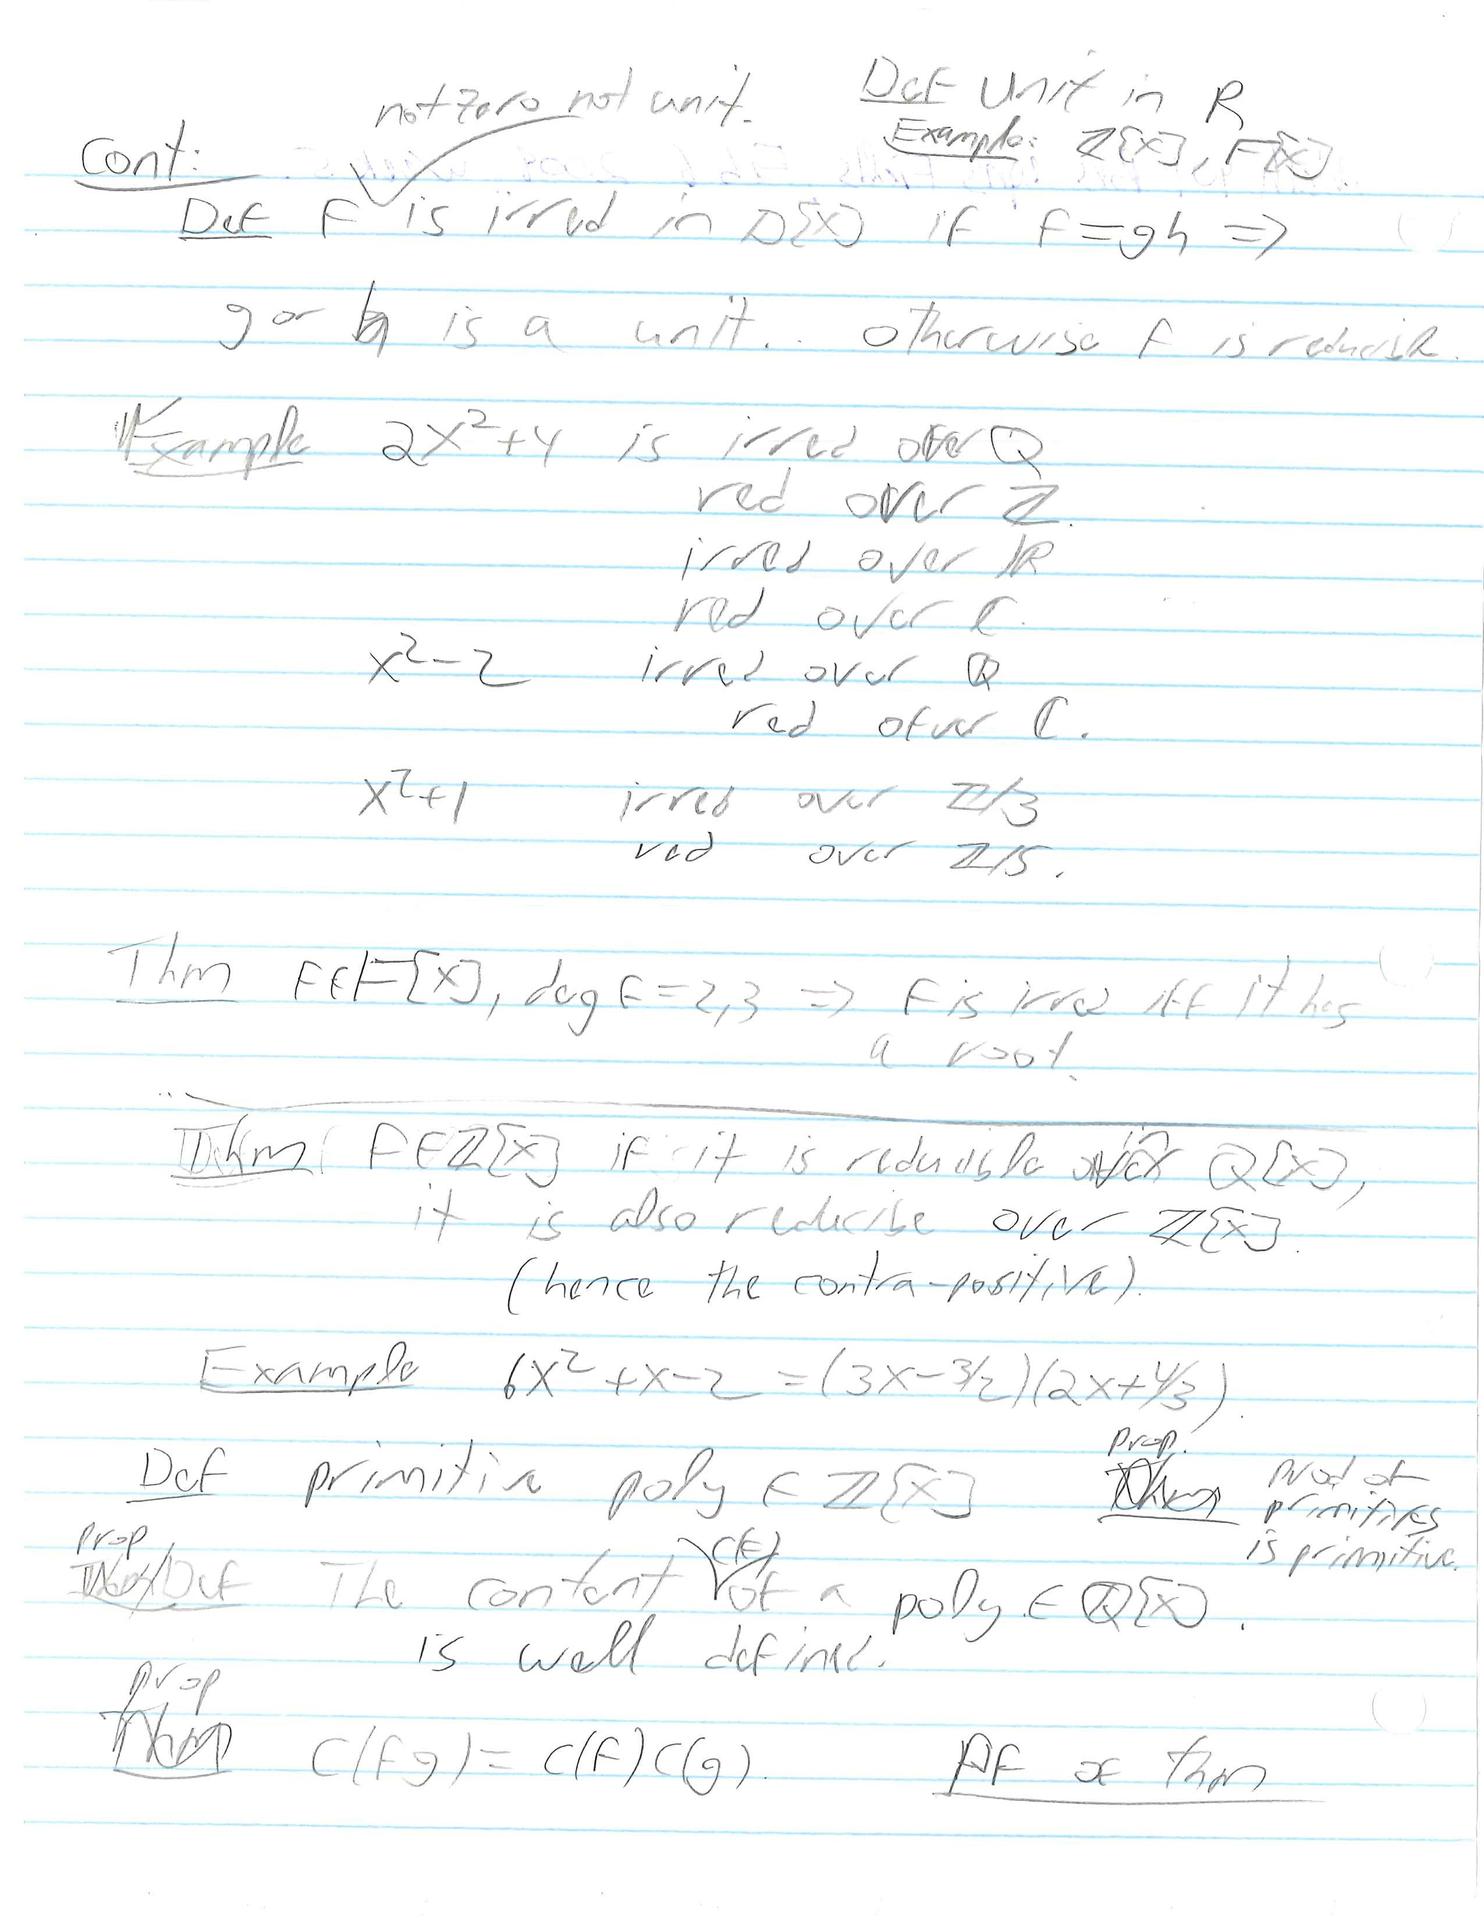 not zero not unit.
Def Unit in R
Example: Z[x], F[x]
Cont:
Def F is irred in D[x] if f=gh ⇒
g or h is a unit.. otherwise f is reducible.
Example 2x²+4 is irred over Q
red over Z.
irred over R
red over C.
x²-2 irred over Q
red over C.
x²+1 irred over Z/3
red over Z/5.
Thm F∈F[x], deg F=2,3 ⇒ F is irred iff it has
a root.
Thm F∈Z[x] if it is reducible over Q[x],
it is also reducibe over Z[x].
(hence the contra-positive).
Example 6x²+x-2 = (3x-3/2)(2x+4/3).
Def primitive poly ∈ Z[x]
Prop. prod of
primitives
is primitive.
prop/Def The content c(f) of a poly ∈ Q[x].
is well defined.
prop
C(fg) = C(f)C(g).
Pf of thm